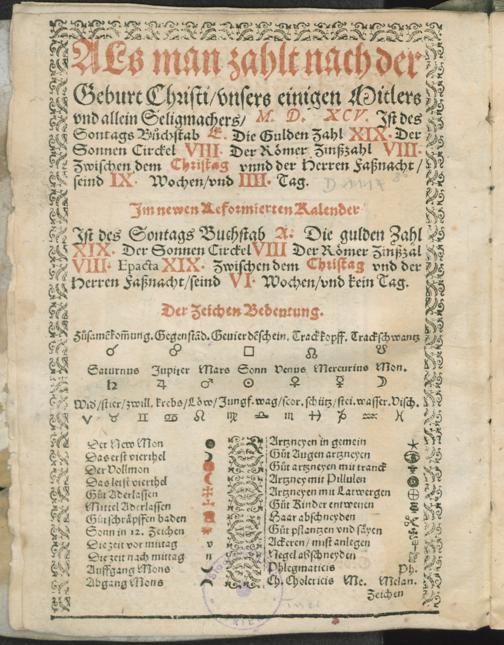 ALs man zahlt nach der
Geburt Christi/vnsers einigen Mitlers
vnd allein Seligmachers/ M. D. XCV. Ist des
Sontags Bůchstab E. Die Gulden Zahl XIX. Der
Sonnen Circkel VIII. Der Rômer Zinßzahl VIII.
Zwischen dem Christag vnnd der Herren Faßnacht/
seind IX. Wochen/vnd IIII. Tag.
Im newen Reformierten Kalender
Ist des Sontags Buchstab A. Die gulden Zahl
XIX. Der Sonnen Circkel VIII Der Rômer Zinßzal
VIII. Epacta XIX. Zwischen dem Christag vnd der
Herren Faßnacht/seind VI. Wochen/vnd kein Tag.
Der Zeichen Bedeutung.
Zůsamẽkom̃ung. Gegenstãd. Gevierdẽschein. Trackkopff. Trackschwantz
☌ ☍ □ ☊ ☋
Saturnus Jupiter Mars Sonn Venus Mercurius Mon.
♄ ♃ ♂ ☉ ♀ ☿ ☽
Wid/stier/zwill. krebs/Lôw/Jungf. wag/scor. schütz/stei. wasser. Visch.
♈ ♉ ♊ ♋ ♌ ♍ ♎ ♏ ♐ ♑ ♒ ♓
Der New Mon
Das erst vierthel
Der Vollmon
Das letst vierthel
Gůt Aderlassen
Mittel Aderlassen
Gůt schråpffen baden
Sonn in 12. Zeichen
Die zeit vor mittag
Die zeit nach mittag
Auffgang Mons
Abgang Mons
Artzneyen in gemein
Gůt Augen artzneyen
Gůt artzneyen mit tranck
Artzney mit Pillulen
Artzneyen mit Latwergen
Gůt Kinder entwenen
Haar abschneyden
Gůt pflantzen vnd såyen
Ackeren/ mist anlegen
Negel abschneyden
Phlegmaticis Ph.
Ch. Cholericis Me. Melan.
Zeichen